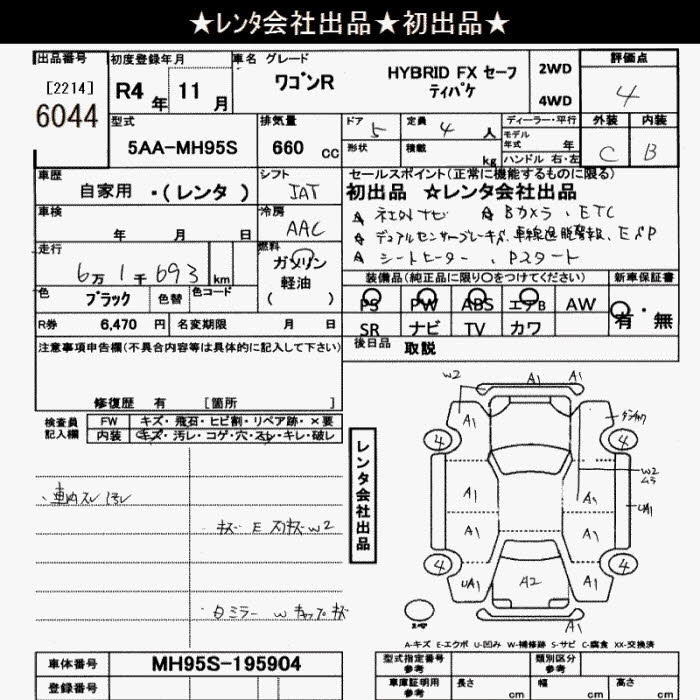 ★レンタ会社出品★初出品★
出品番号
[2214]
6044
初度登録年月
R4年 11月
車名 グレード
ワゴンR
HYBRID FX セーフ
ティパケ
2WD
4WD
評価点
4
型式
5AA-MH95S
排気量
660 cc
ドア 5
定員 4 人
形状
積載 kg
ディーラー・平行
モデル
年式 年
ハンドル 右・左
外装 内装
C B
車歴
自家用 ・(レンタ )
シフト
IAT
車検
年 月 日
冷房
AAC
走行
6万1千693 km
燃料
ガソリン
軽油
( )
色
ブラック
色替
色コード
R券 6,470 円
名変期限 月 日
セールスポイント(正常に機能するものに限る)
初出品 ☆レンタ会社出品
社外ナビ Bカメラ、ETC
デュアルセンサーブレーキS、車線逸脱警報、ESP
シートヒーター、Pスタート
装備品(純正品に限り○をつけてください)
PS PW ABS エアB AW
SR ナビ TV カワ
新車保証書
有・無
後日品 取説
注意事項申告欄(不具合内容等は具体的に記入して下さい)
修復歴 有 [箇所 ]
検査員
記入欄
FW キズ・飛石・ヒビ割・リペア跡・×要
内装 キズ・汚レ・コゲ・穴・スレ・キレ・破レ
レンタ会社出品
W2
A1
A1
A1
A1
4
4
W2
ムラ
A1
A1
UA1
A1
A1
4
4
UA1
A2
A1
A1
A-キズ E-エクボ U-凹み W-補修跡 S-サビ C-腐食 XX-交換済
車体番号
MH95S-195904
登録番号
型式指定番号
参考
類別区分
参考
車庫証明用
参考
長さ cm
幅 cm
高さ cm